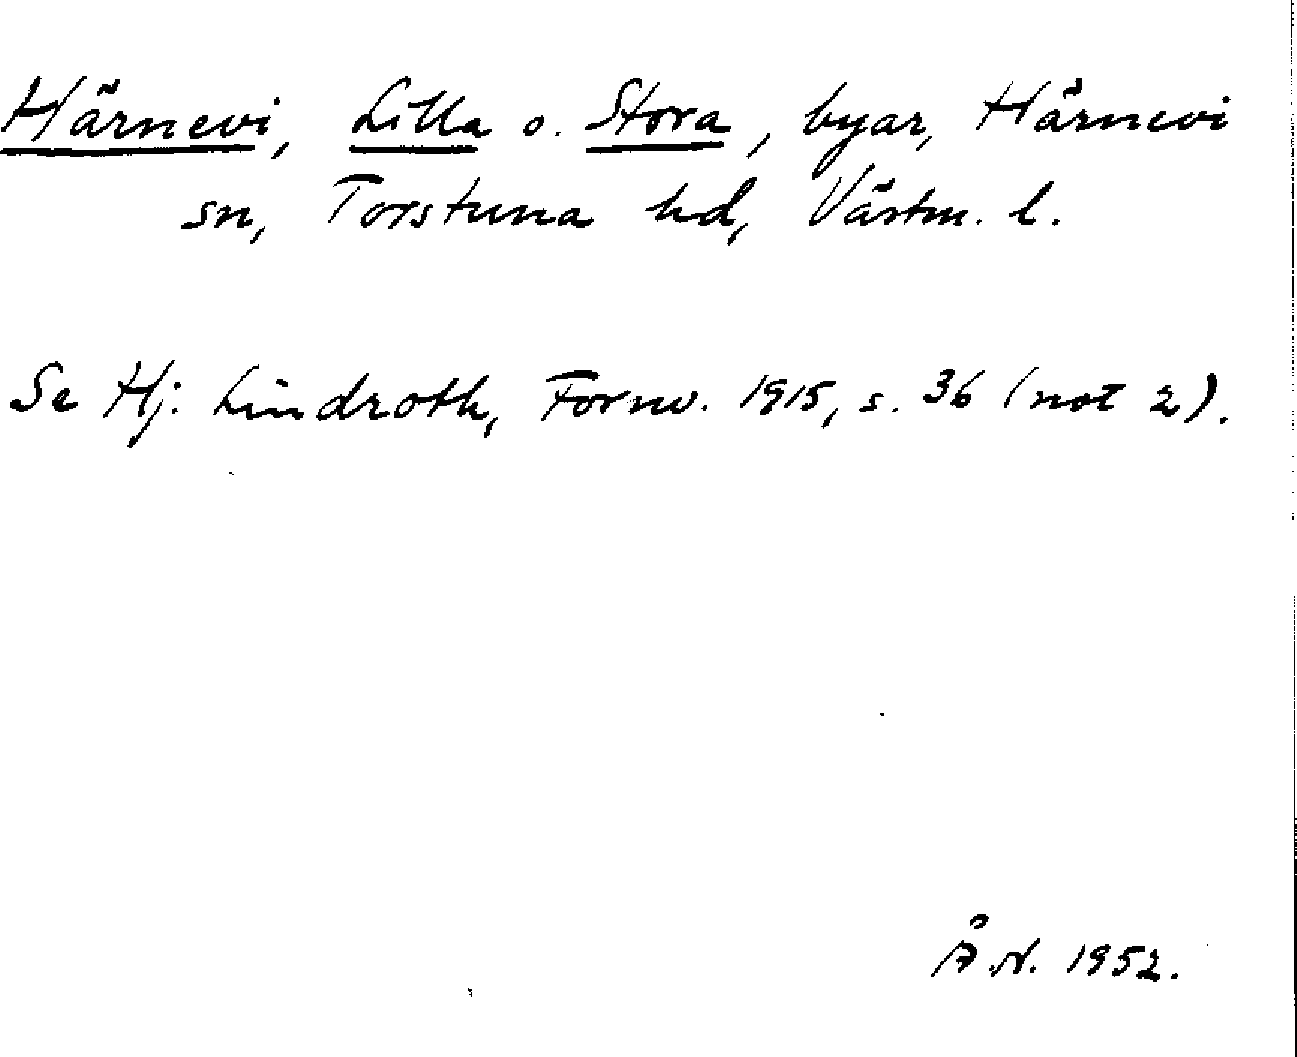 Härnevi, Lilla o. Stora, byar, Härnevi
sn, Torstuna hd, Västm. l.
Se Hj. Lindroth, Fornv. 1915, s. 36 (not 2).
Å.N. 1952.